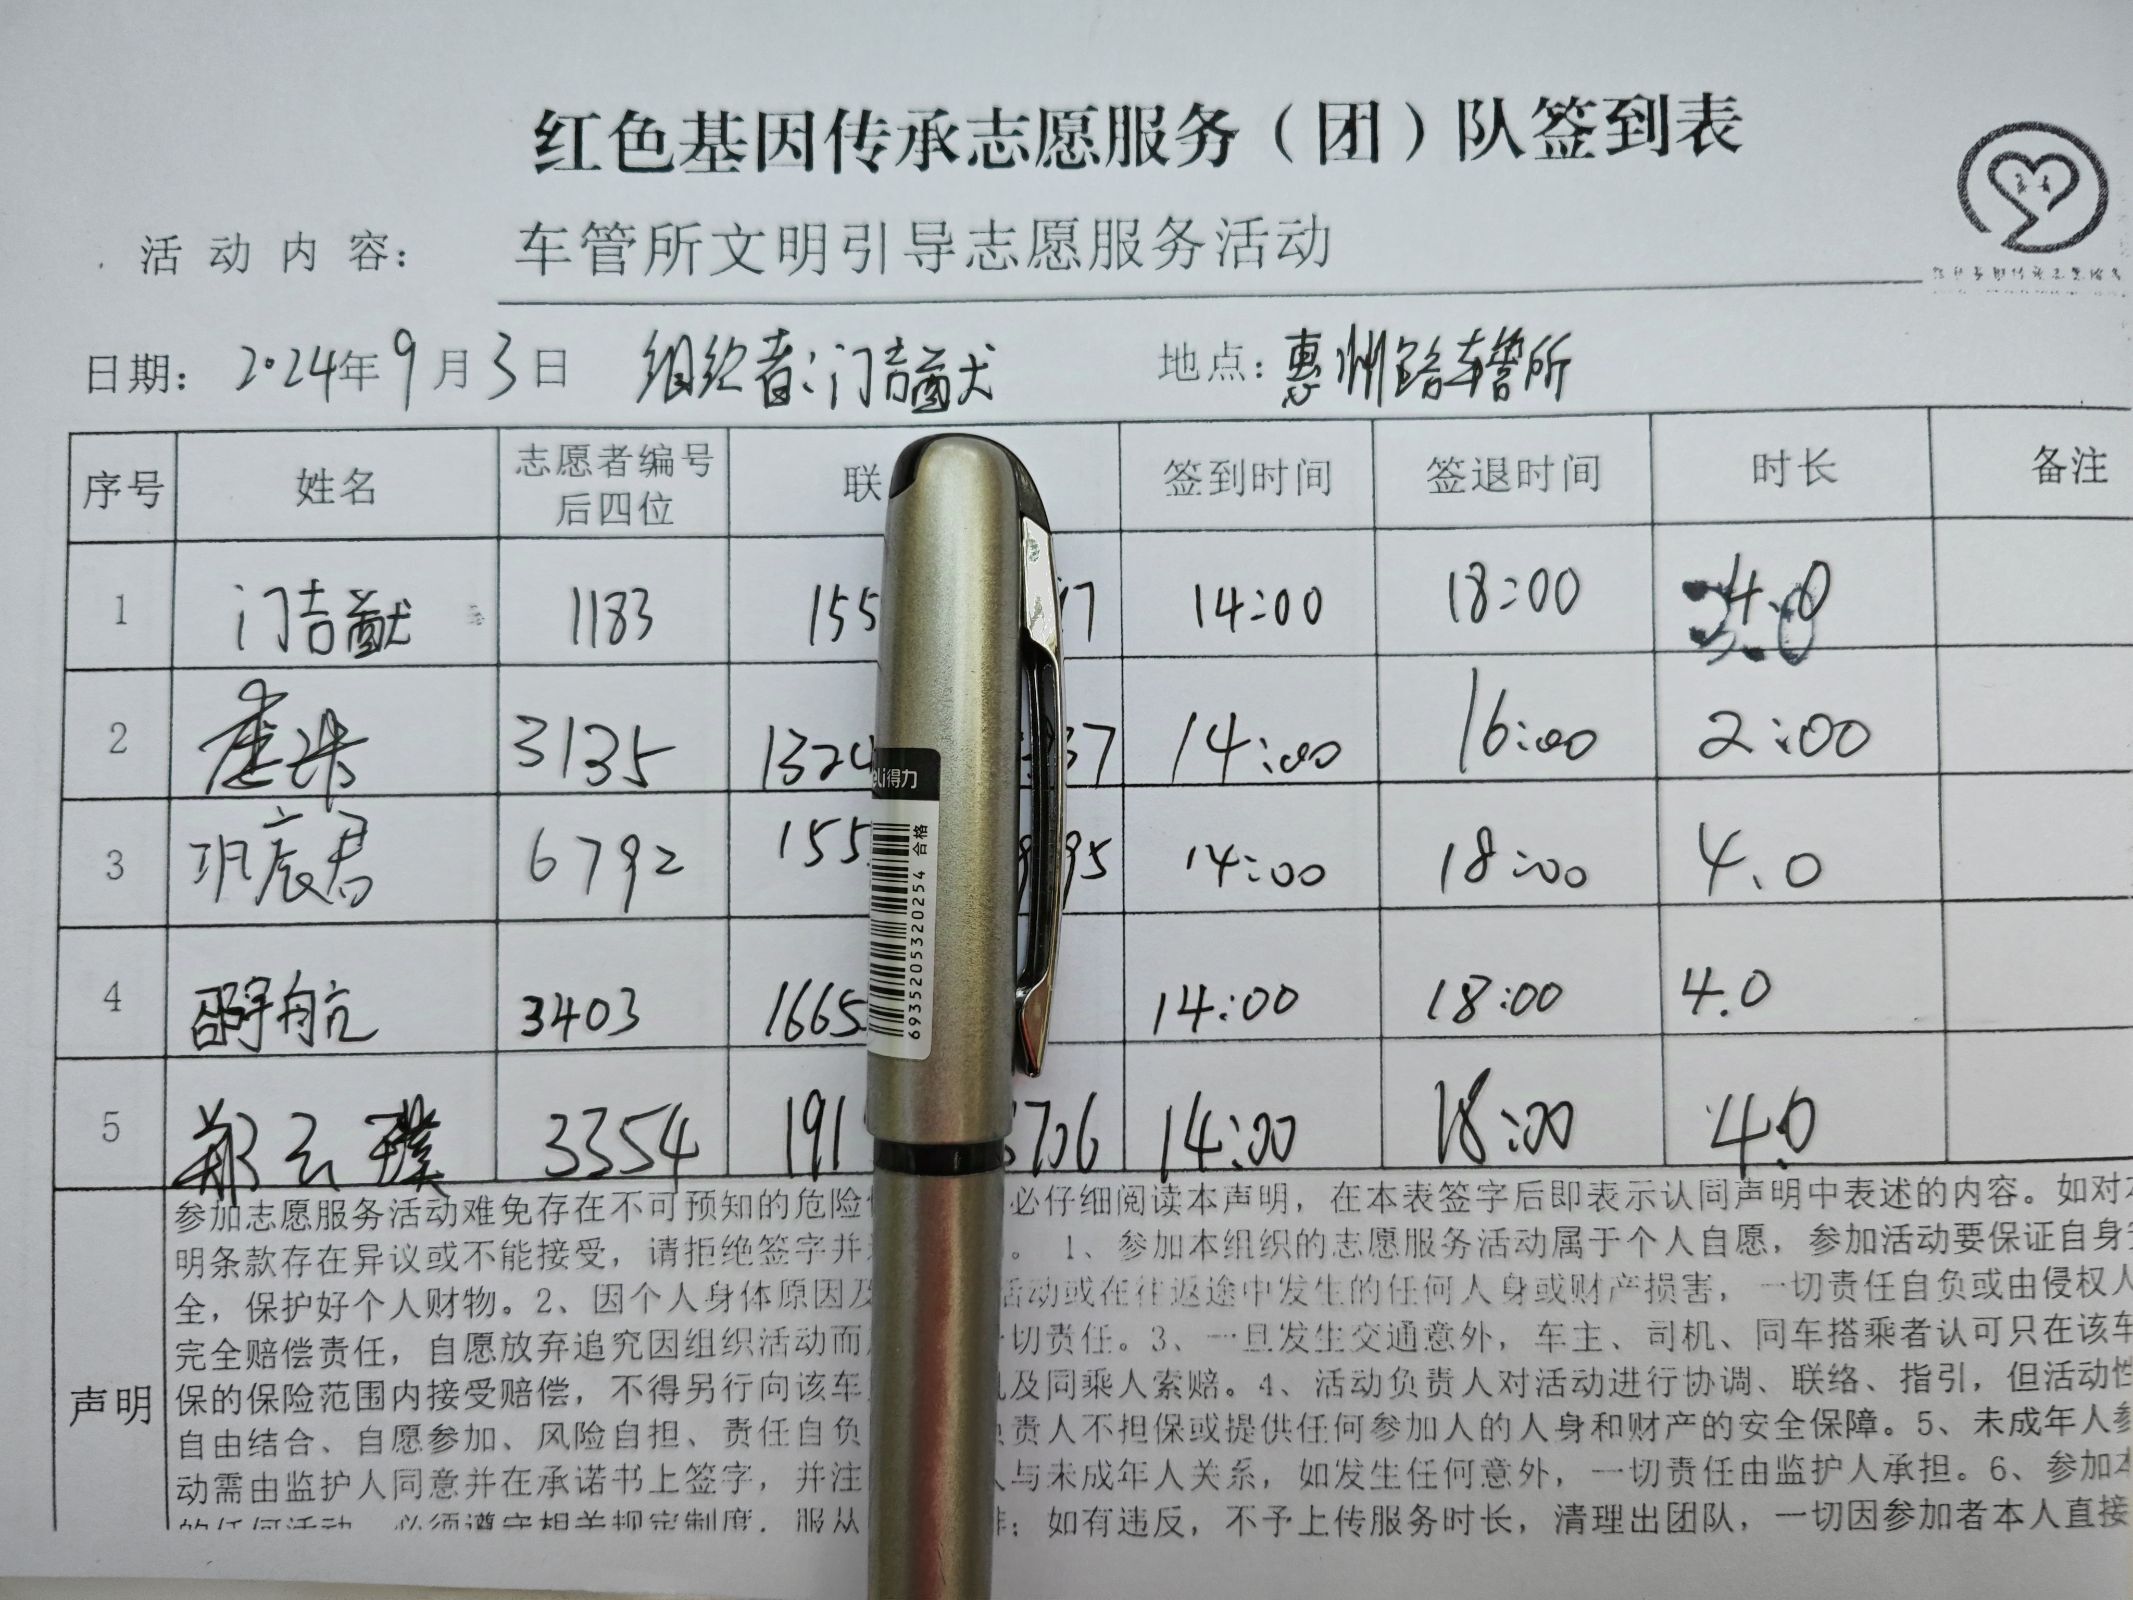 红色基因传承志愿服务（团）队签到表
活动内容： 车管所文明引导志愿服务活动
日期：2024年9月3日 组织者：门吉猷 地点：惠州路车管所
序号 姓名 志愿者编号后四位 联 签到时间 签退时间 时长 备注
1 门吉猷 1183 155 7 14:00 18:00 4.0
2 3135 1324 37 14:00 16:00 2:00
3 巩宸君 6792 155 95 14:00 18:00 4.0
4 航 3403 1665 14:00 18:00 4.0
5 郑云璞 3354 191 706 14:00 18:00 4.0
得力
合格
6935205320254
声明
参加志愿服务活动难免存在不可预知的危险 必仔细阅读本声明，在本表签字后即表示认同声明中表述的内容。如对
明条款存在异议或不能接受，请拒绝签字并 。1、参加本组织的志愿服务活动属于个人自愿，参加活动要保证自身
全，保护好个人财物。2、因个人身体原因及 活动或在往返途中发生的任何人身或财产损害，一切责任自负或由侵权人
完全赔偿责任，自愿放弃追究因组织活动而 切责任。3、一旦发生交通意外，车主、司机、同车搭乘者认可只在该车
保的保险范围内接受赔偿，不得另行向该车 及同乘人索赔。4、活动负责人对活动进行协调、联络、指引，但活动性
自由结合、自愿参加、风险自担、责任自负 负责人不担保或提供任何参加人的人身和财产的安全保障。5、未成年人参
动需由监护人同意并在承诺书上签字，并注 人与未成年人关系，如发生任何意外，一切责任由监护人承担。6、参加本
的任何活动，必须遵守相关规定制度，服从 ；如有违反，不予上传服务时长，清理出团队，一切因参加者本人直接